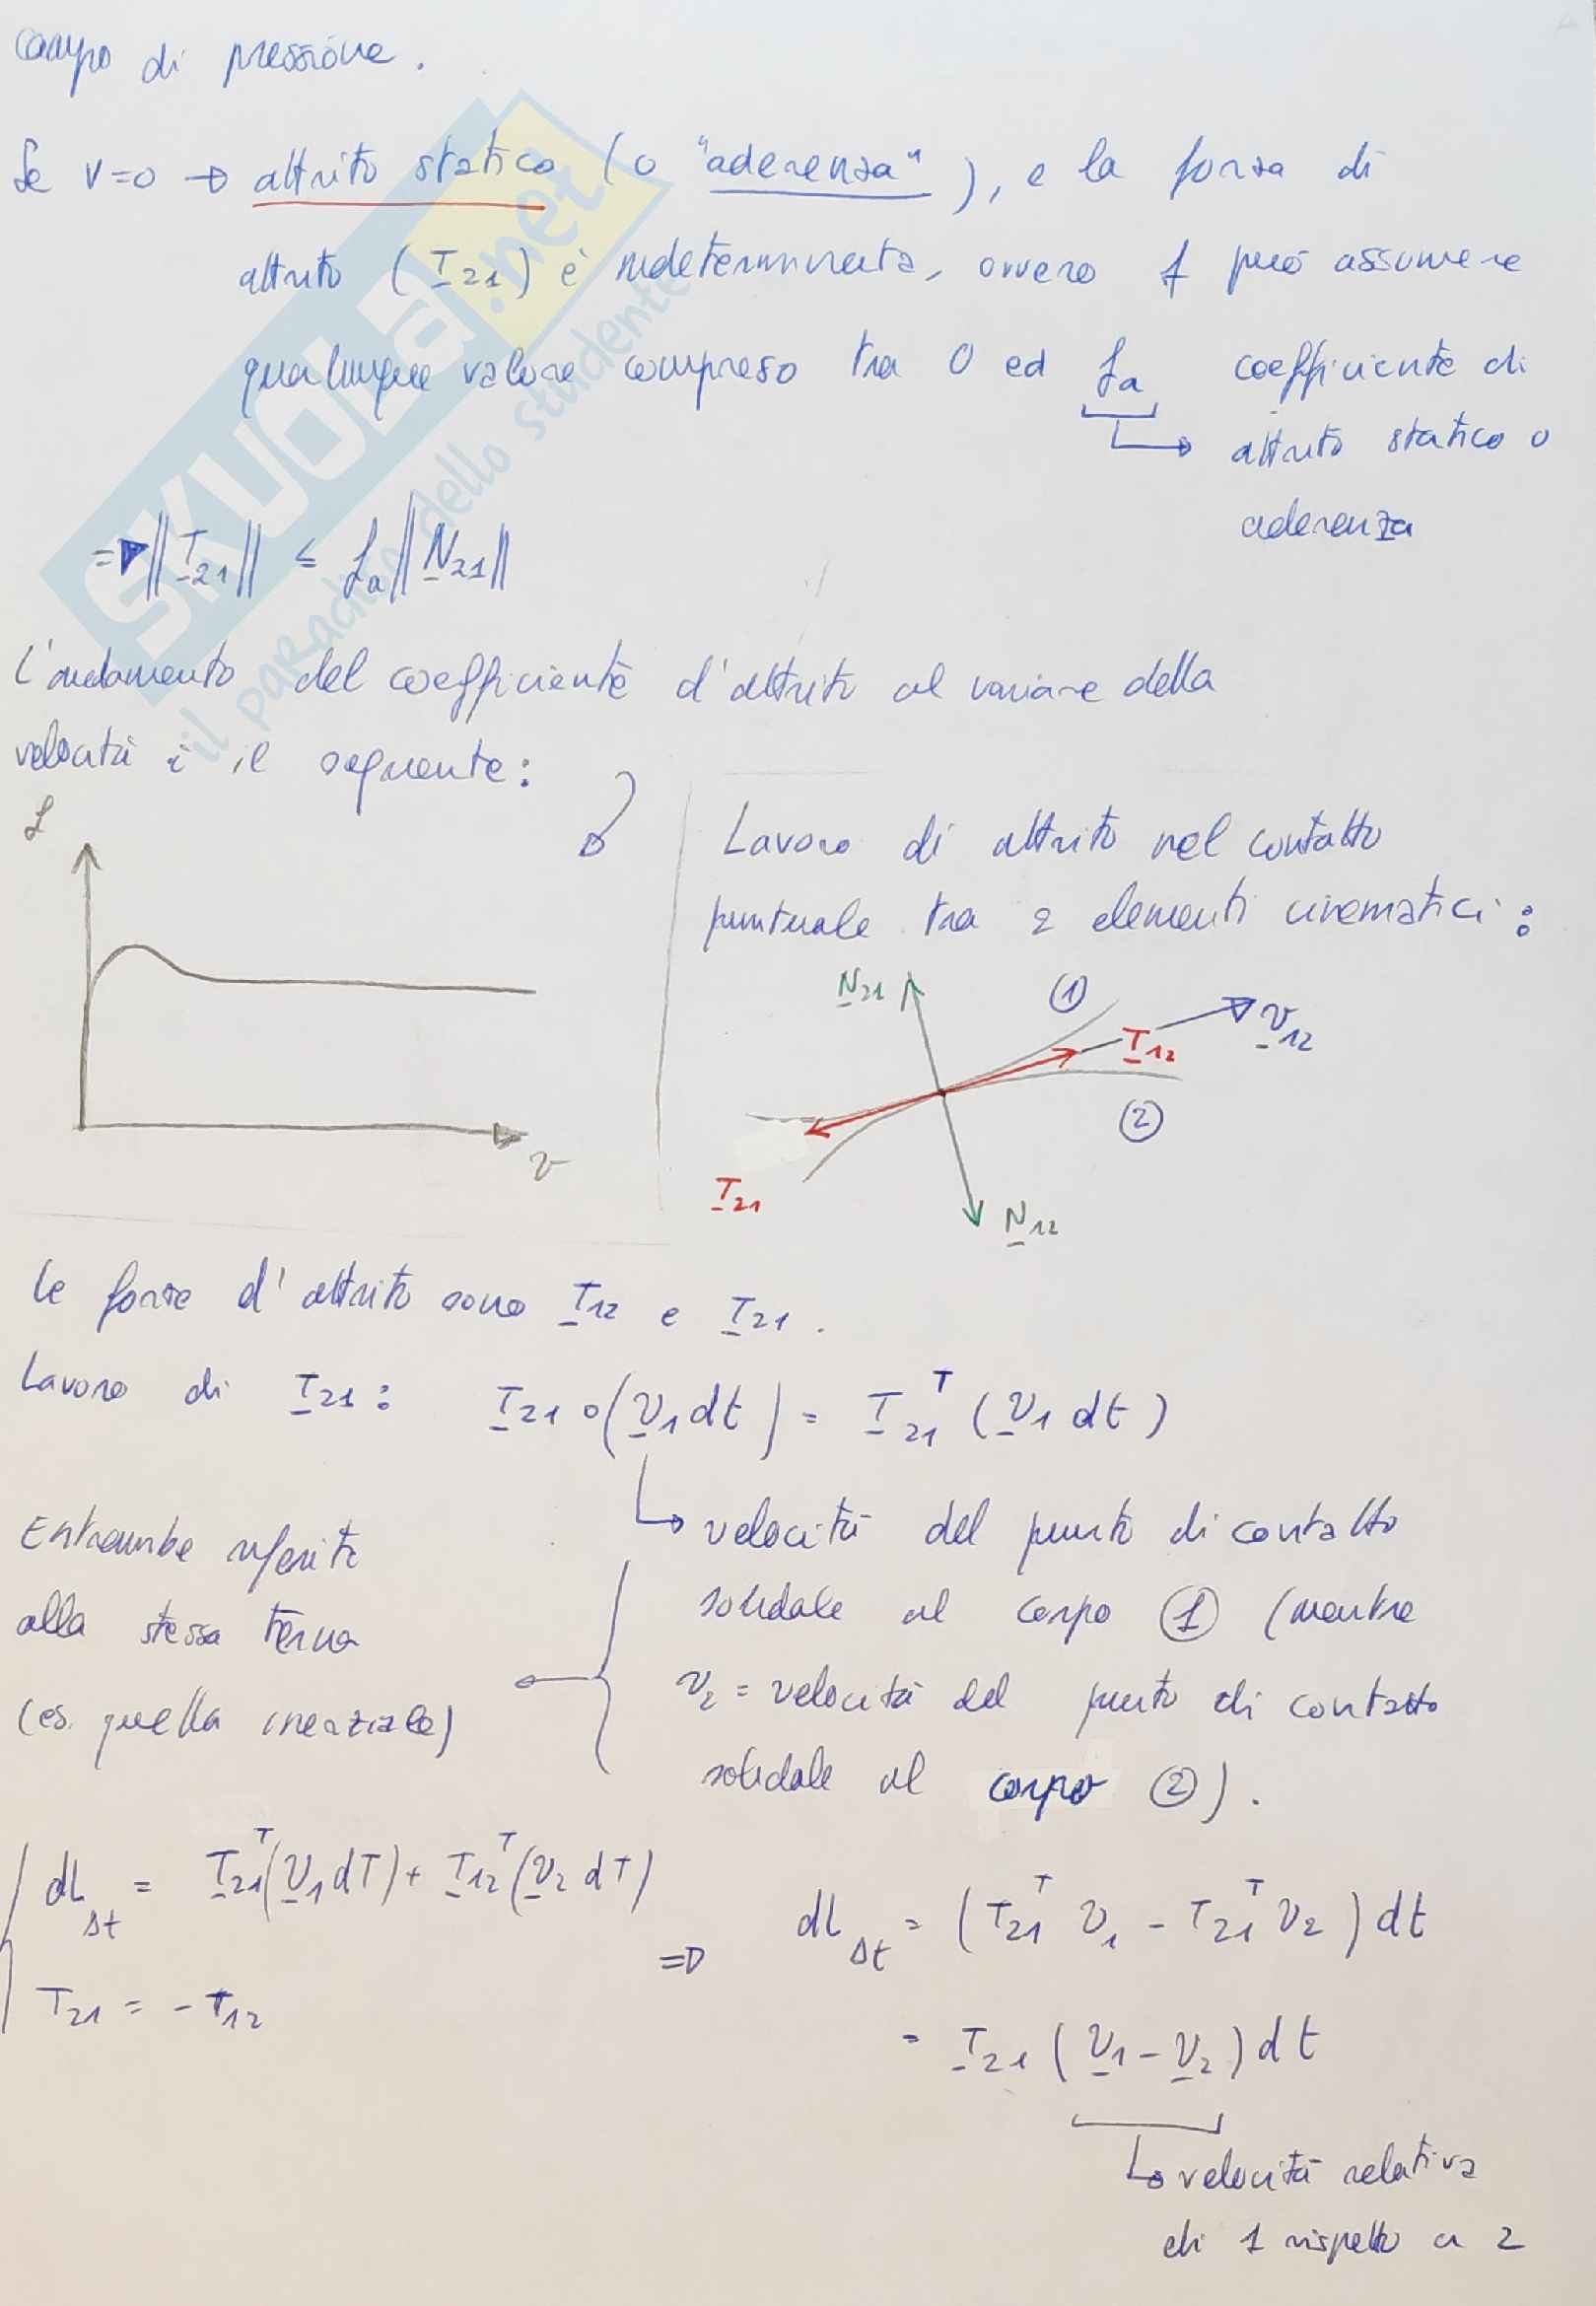 campo di pressione.
Se v=0 → attrito statico (o "aderenza"), e la forza di
attrito (T21) è indeterminata, ovvero f può assumere
qualunque valore compreso tra 0 ed fa coefficiente di
attrito statico o
aderenza
=> ||T21|| ≤ fa ||N21||
L'andamento del coefficiente d'attrito al variare della
velocità è il seguente:
f
v
Lavoro di attrito nel contatto
puntuale tra 2 elementi cinematici:
N21
(1)
T12
v12
(2)
T21
N12
Le forze d'attrito sono T12 e T21.
Lavoro di T21: T21 ∘ (v1 dt) = T21^T (v1 dt)
velocità del punto di contatto
solidale al corpo (1) (mentre
v2 = velocità del punto di contatto
solidale al corpo (2)).
Entrambe riferite
alla stessa terna
(es. quella inerziale)
dL Δt = T21^T (v1 dT) + T12^T (v2 dT)
T21 = - T12
=> dL Δt = (T21^T v1 - T21^T v2) dt
= T21 (v1 - v2) dt
velocità relativa
di 1 rispetto a 2
SKUOLA.net
il paradiso dello studente